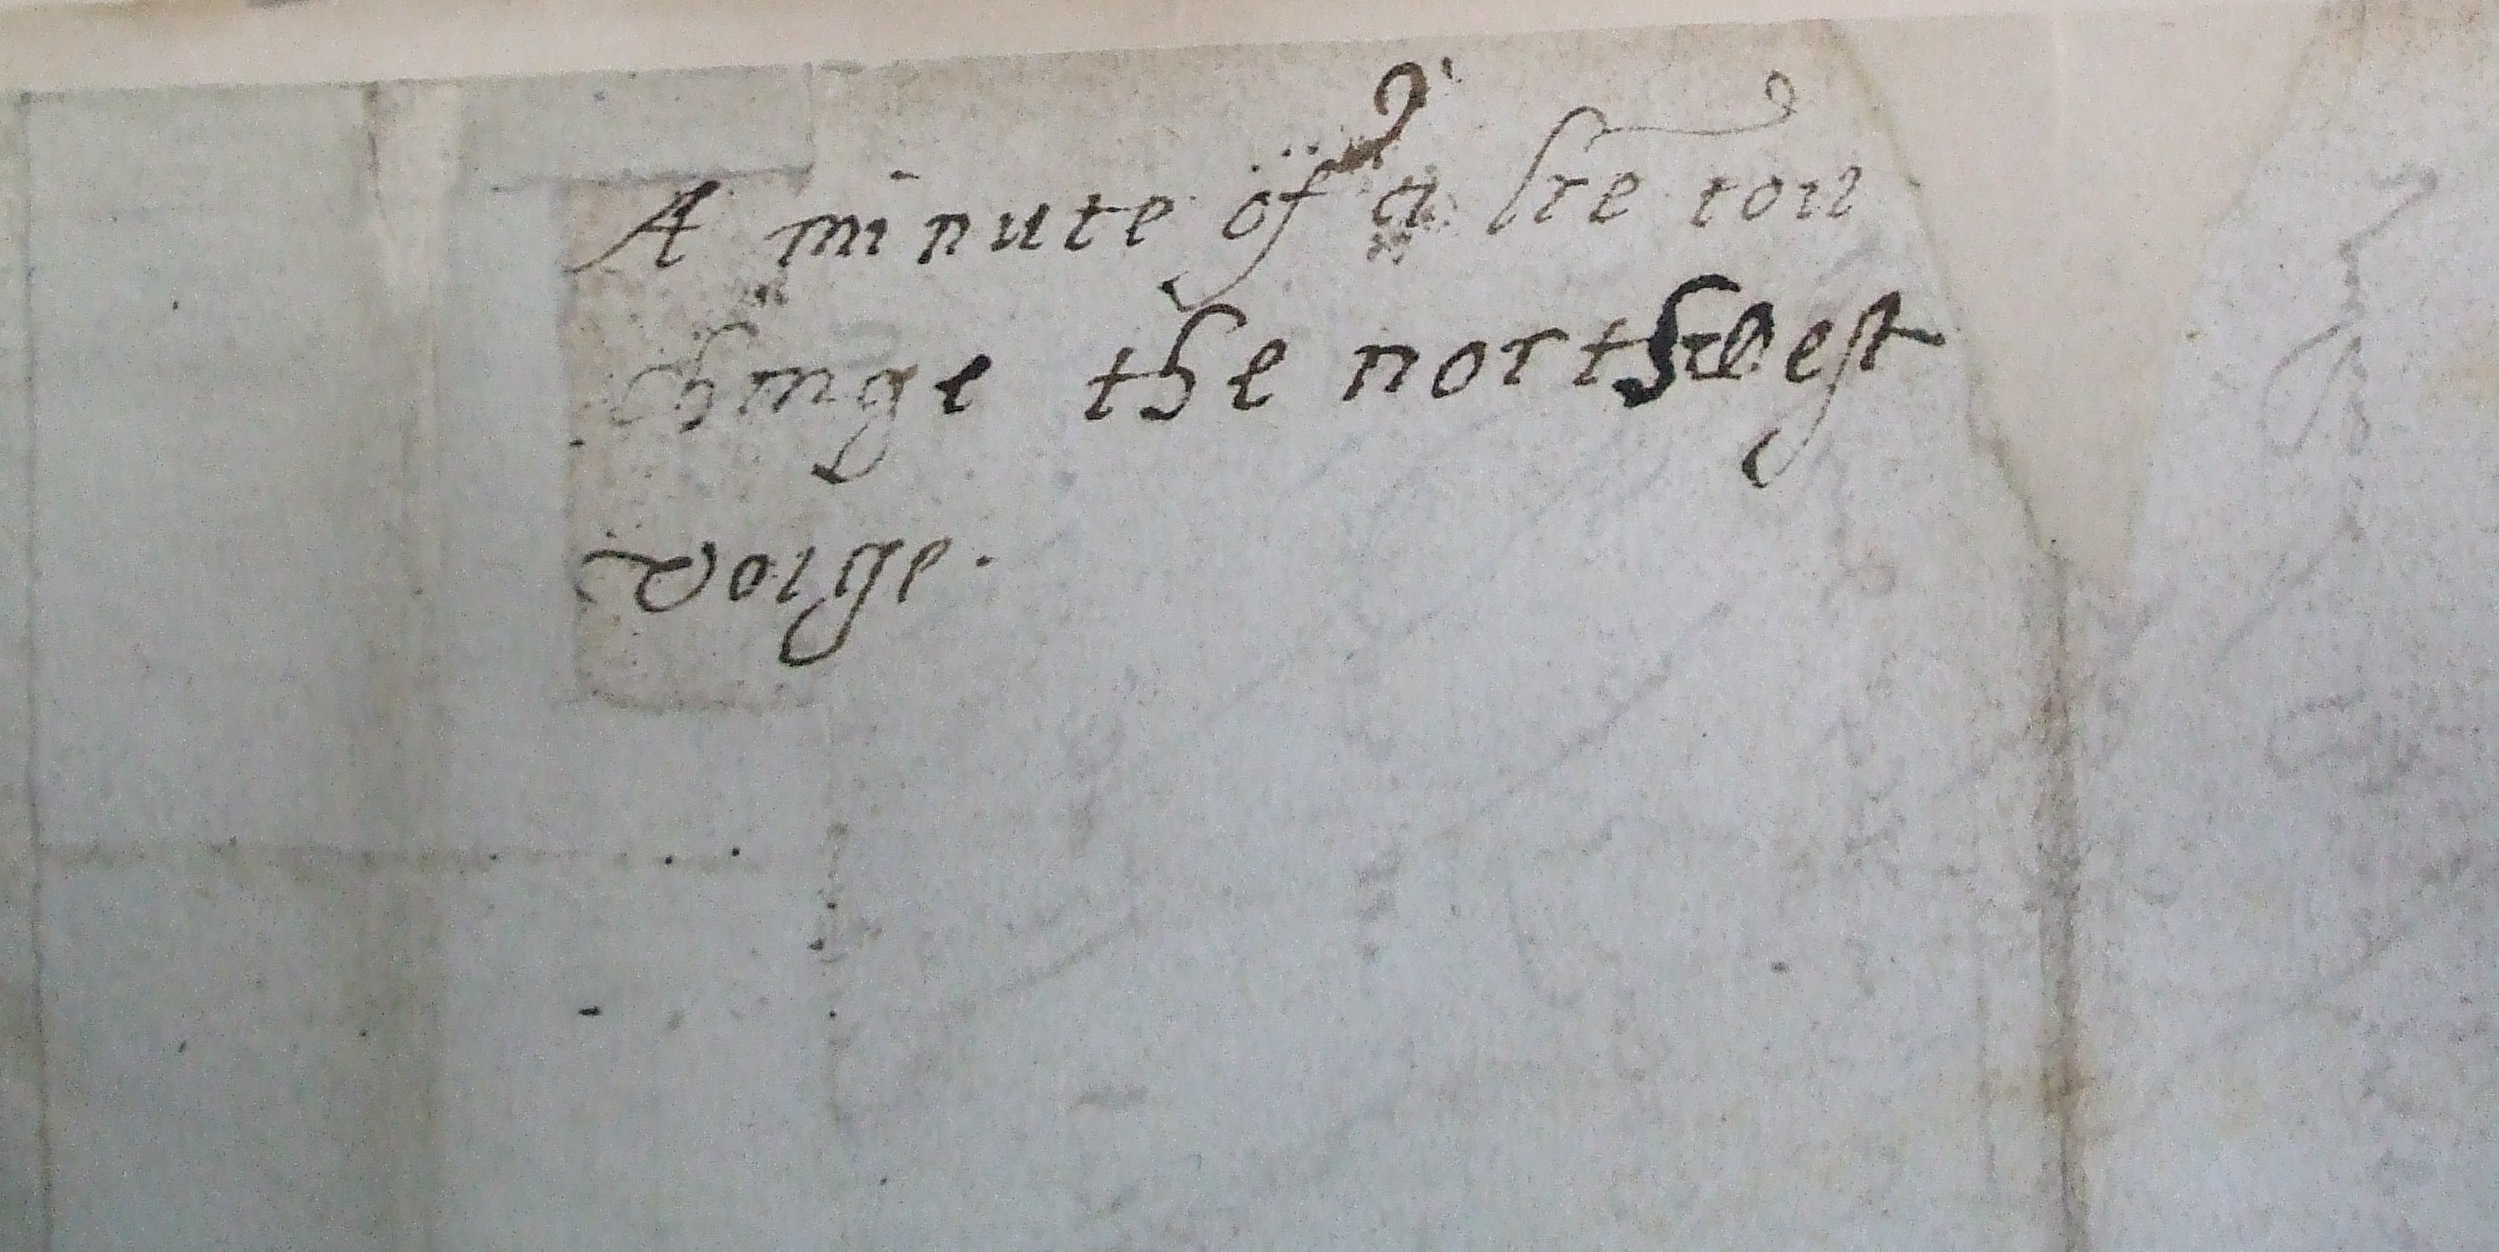 A minute of a lre tou
chinge the northwest
voige.